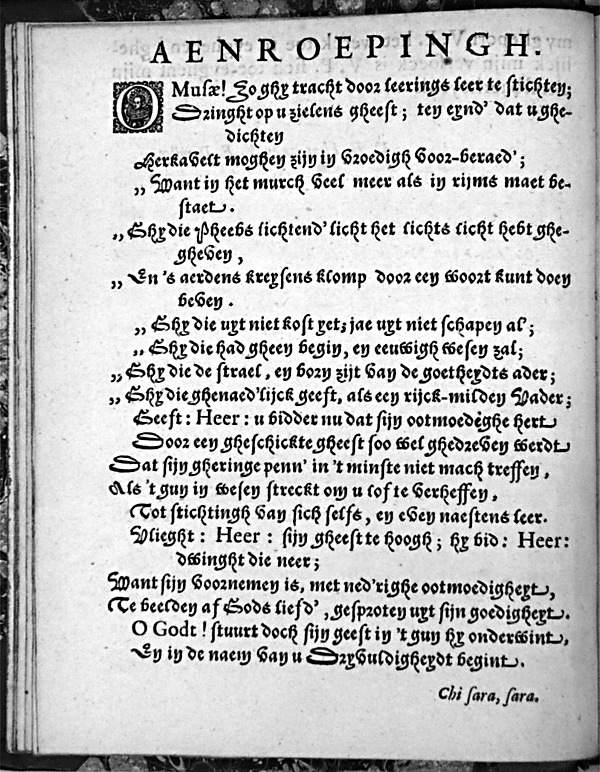 AENROEPINGH.
O Musæ! Zo ghy tracht door leerings leer te stichten;
Dringht op u zielens gheest; ten eynd' dat u ghe-
dichten
Herkavelt moghen zijn in vroedigh voor-beraed';
„ Want in het murch veel meer als in rijms maet be-
staet.
„ Ghy die Pheebs lichtend' licht het lichts licht hebt ghe-
gheven,
„ En 's aerdens kreysens klomp door een woort kunt doen
beven.
„ Ghy die uyt niet kost yet; jae uyt niet schapen al';
„ Ghy die had gheen begin, en eeuwigh wesen zal;
„ Ghy die de strael, en born zijt van de goetheydts ader;
„ Ghy die ghenaed'lijck geeft, als een rijck-milden Vader;
Geeft: Heer: u bidder nu dat sijn ootmoedighe hert
Door een gheschickte gheest soo wel ghedreven werdt
Dat sijn gheringe penn' in 't minste niet mach treffen,
Als 't gun in wesen streckt om u lof te verheffen,
Tot stichtingh van sich selfs, en even naestens leer.
Vlieght: Heer: sijn gheest te hoogh; hy bid: Heer:
dwinght die neer;
Want sijn voornemen is, met ned'righe ootmoedigheyt,
Te beelden af Gods liefd', gesproten uyt sijn goedigheyt.
O Godt! stuurt doch sijn geest in 't gun hy onderwint,
En in de naem van u Dryvuldigheydt begint.
Chi sara, sara.